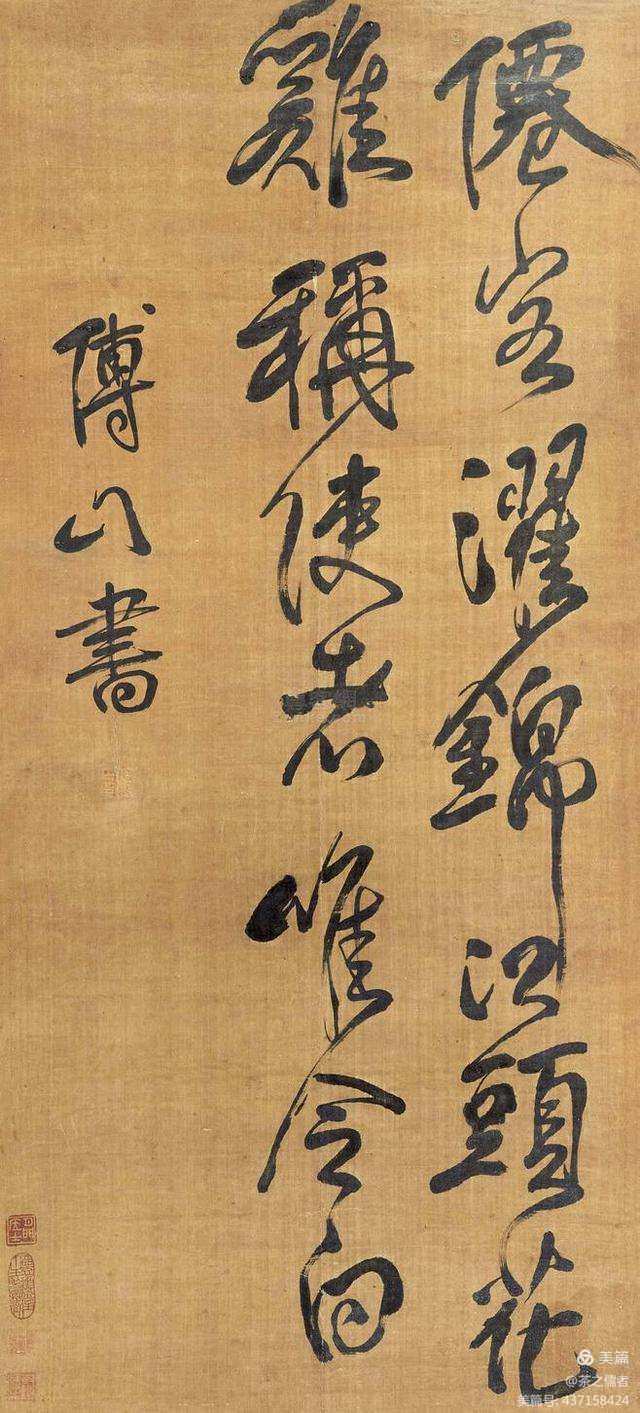 僊客濯錦江頭花
雞稱使者唯令向
傅山書
美篇
@茶之儒者
美篇号: 437158424